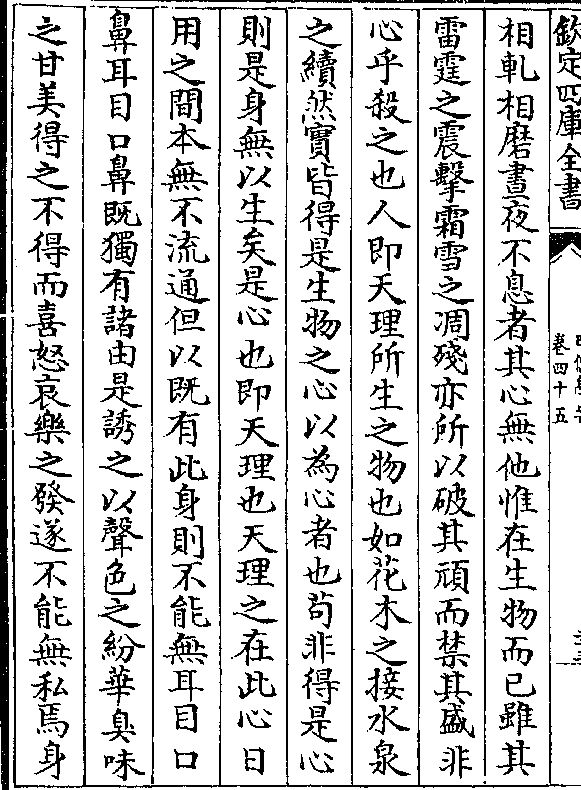 欽定四庫全書
卷四十五
相軋相磨晝夜不息者其心無他惟在生物而已雖其
雷霆之震擊霜雪之凋殘亦所以破其頑而禁其盛非
心乎殺之也人即天理所生之物也如花木之接水泉
之續然實皆得是生物之心以為心者也苟非得是心
則是身無以生矣是心也即天理也天理之在此心日
用之間本無不流通但以既有此身則不能無耳目口
鼻耳目口鼻既獨有諸由是誘之以聲色之紛華臭味
之甘美得之不得而喜怒哀樂之發遂不能無私焉身